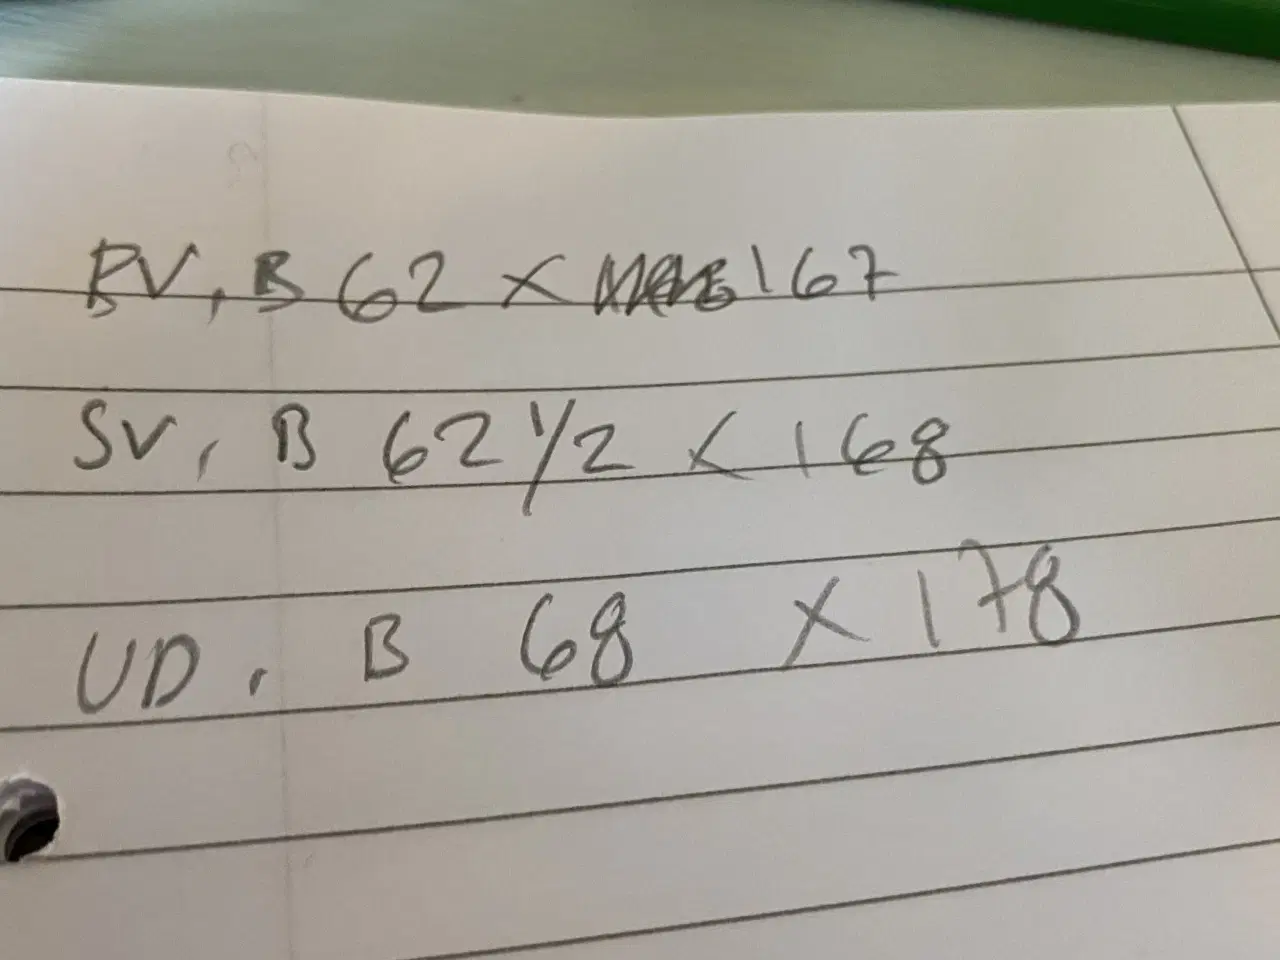 BV, B 62 x 167
SV, B 62 1/2 x 168
UD, B 68 x 178